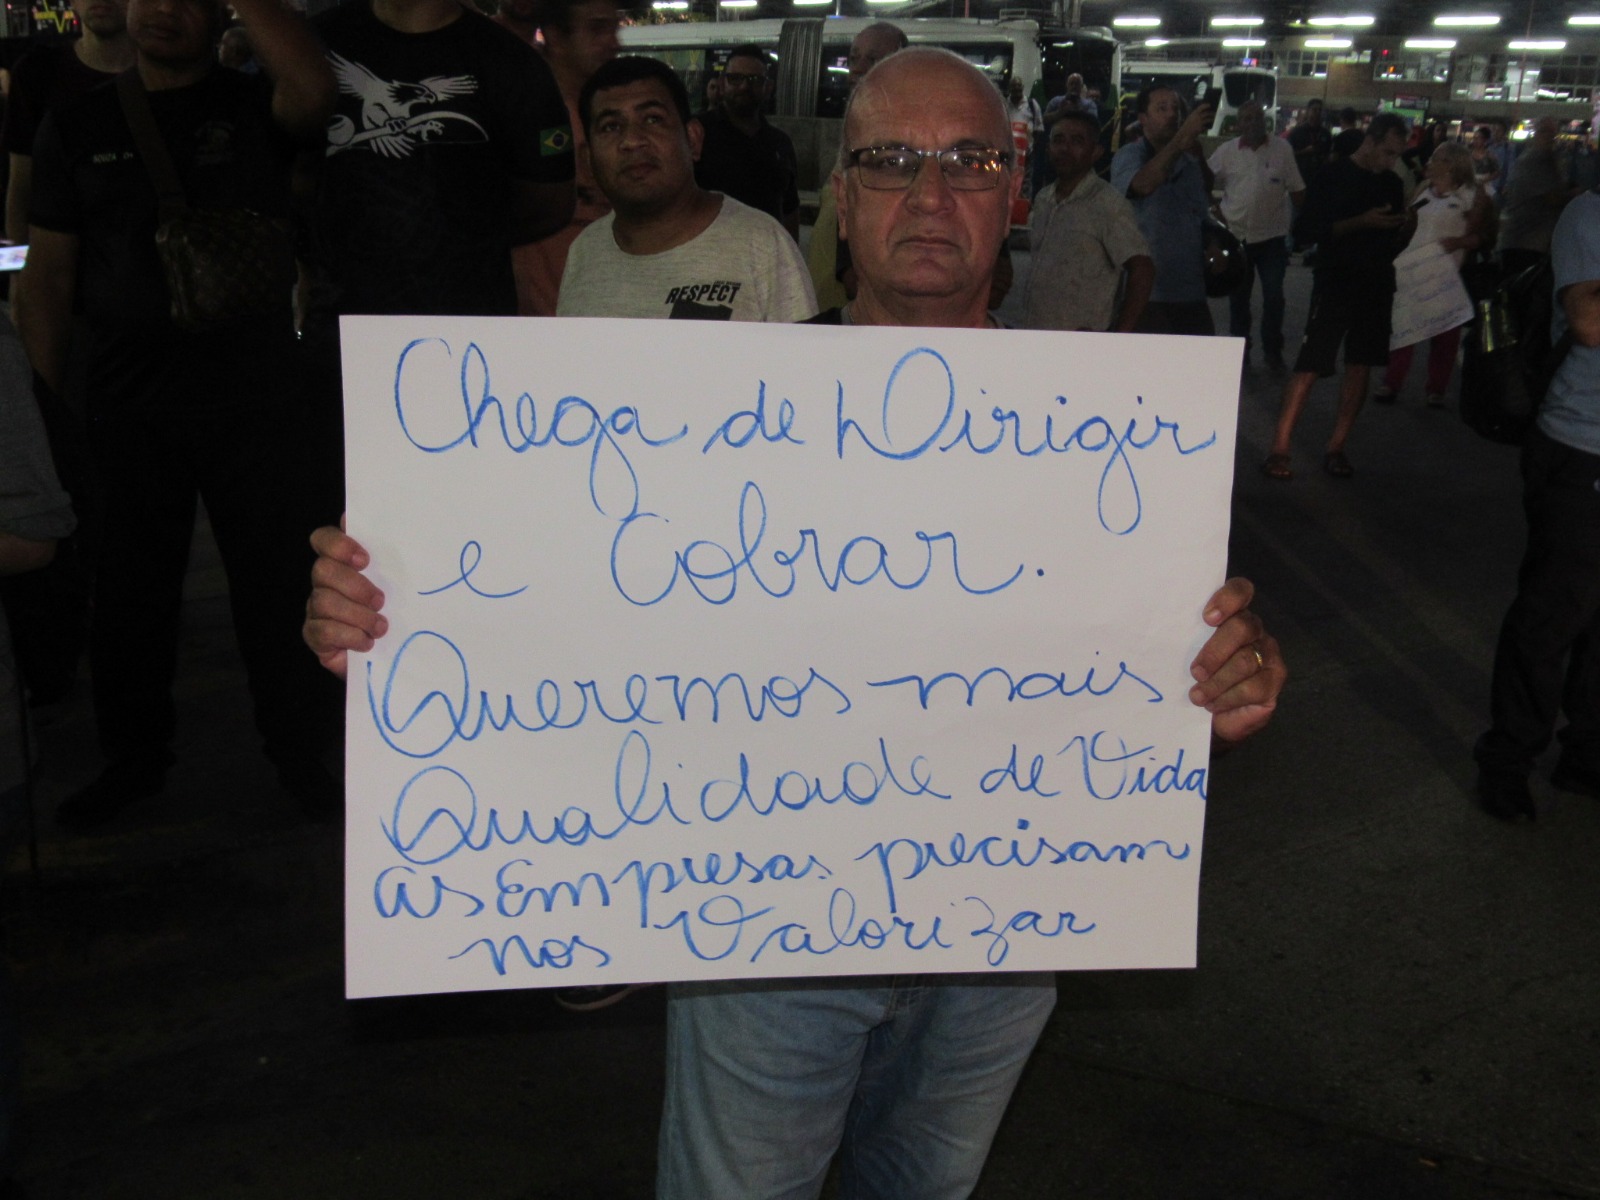 SOUZA O+
RESPECT
Chega de Dirigir
e Cobrar.
Queremos mais
Qualidade de Vida
as Empresas precisam
nos Valorizar